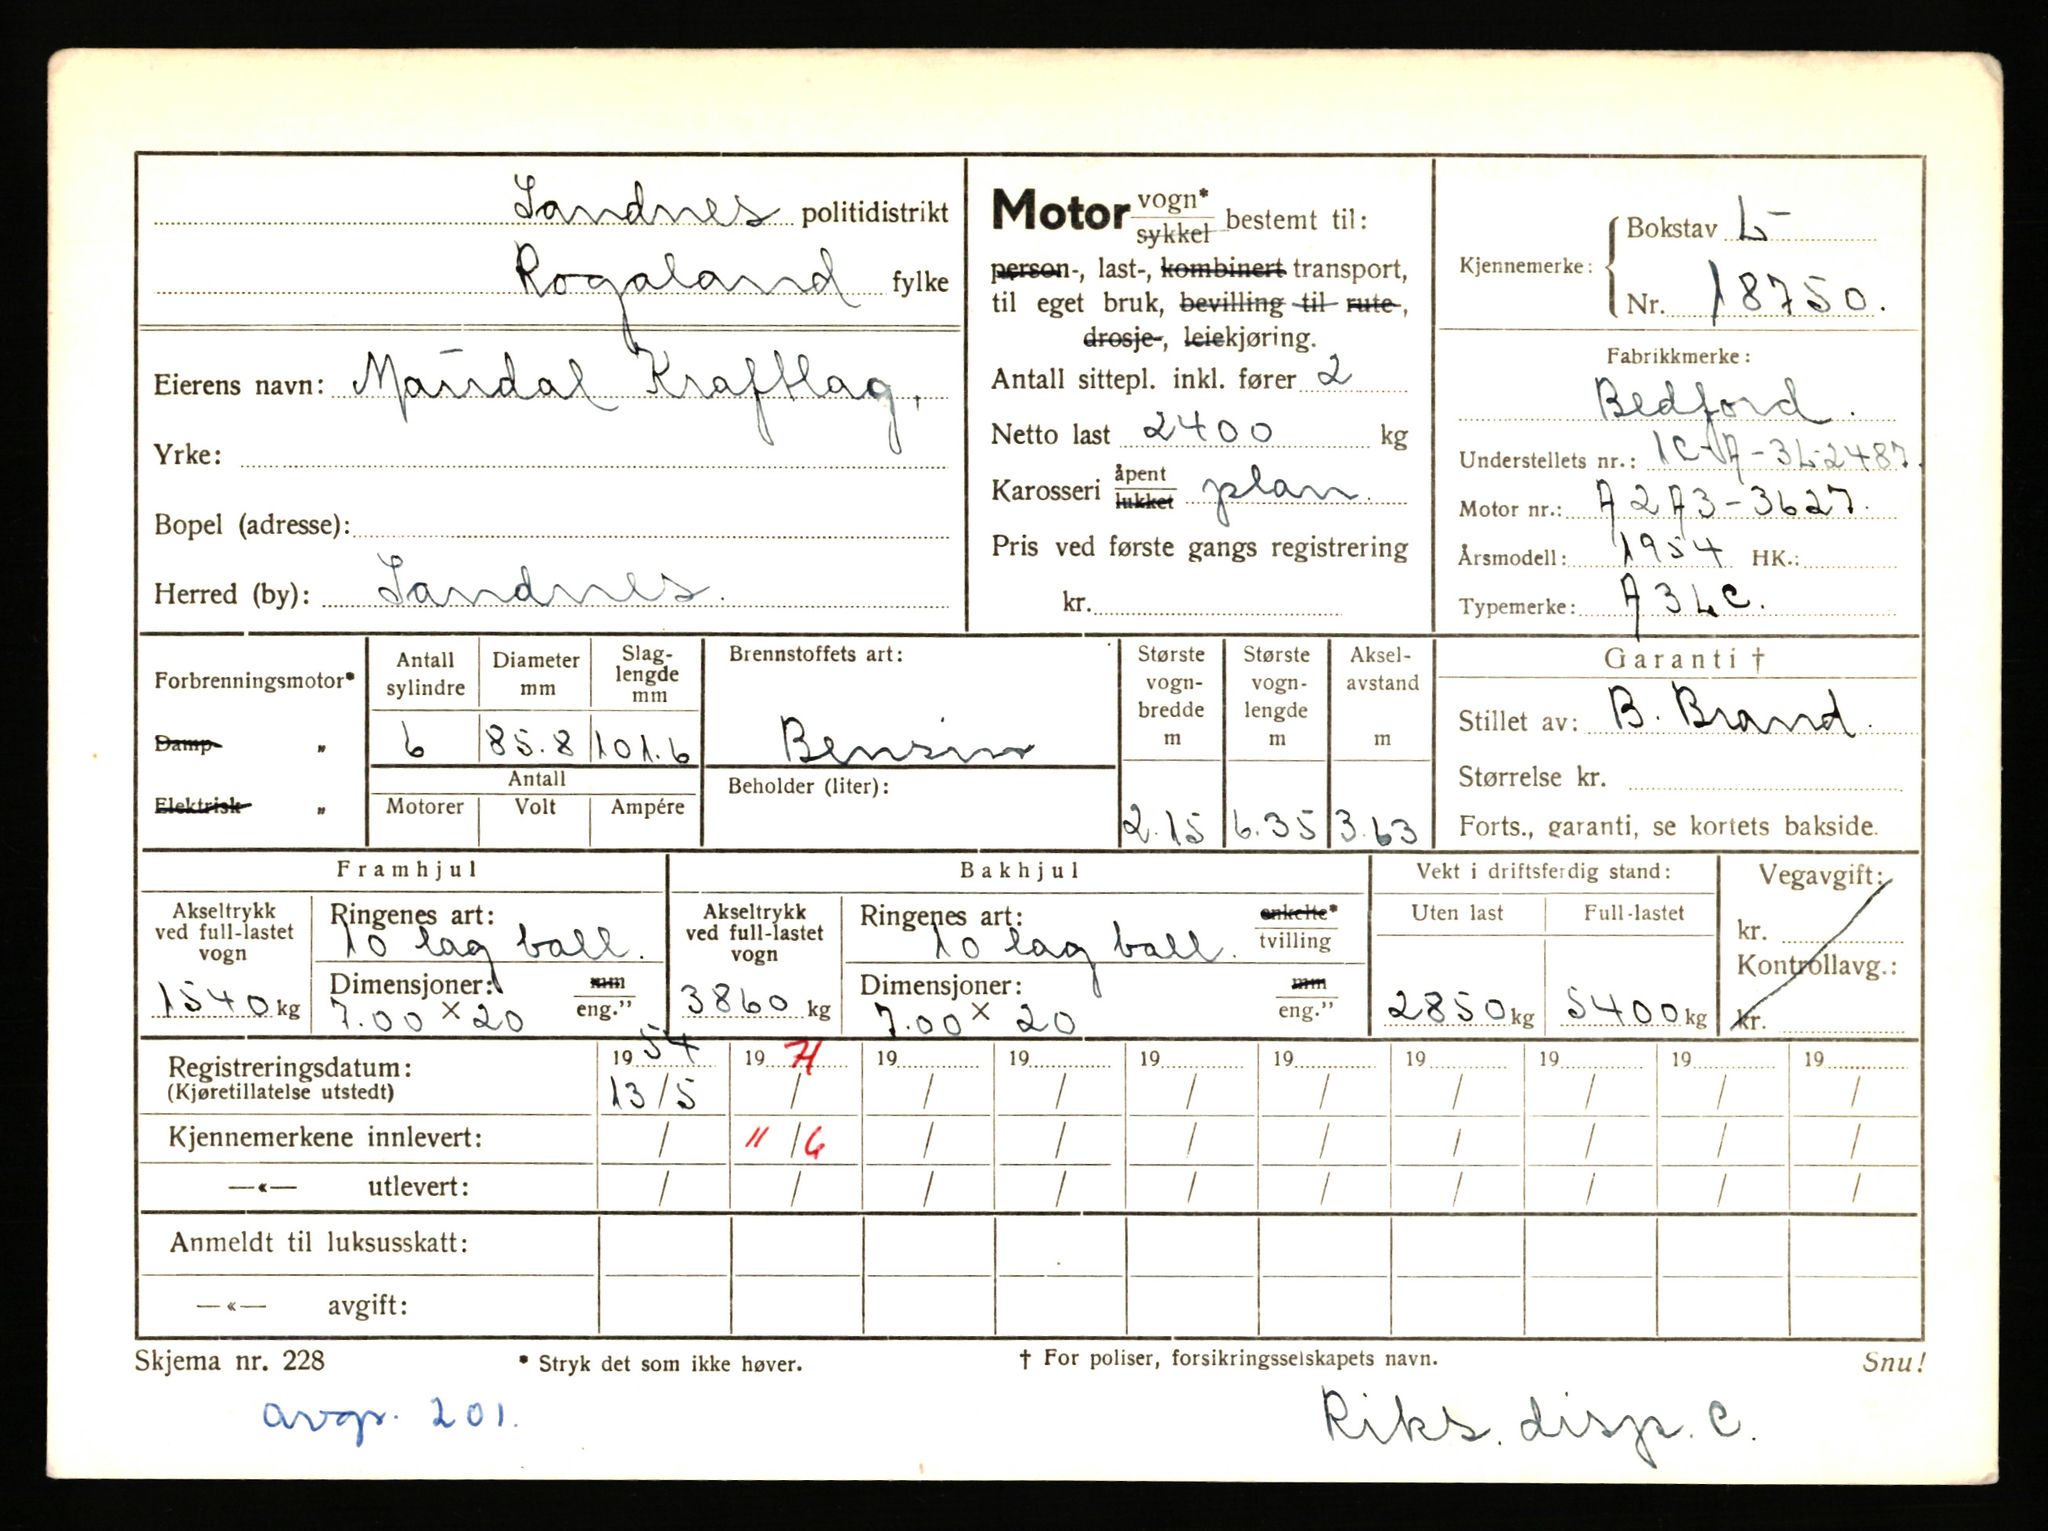 Sandnes politidistrikt
Rogaland fylke
Eierens navn: Maudal Kraftlag.
Yrke:
Bopel (adresse):
Herred (by): Sandnes.
Motor vogn* sykkel bestemt til:
person-, last-, kombinert transport,
til eget bruk, bevilling til rute-,
drosje-, leiekjøring.
Antall sittepl. inkl. fører 2
Netto last 2400 kg
Karosseri åpent lukket plan.
Pris ved første gangs registrering
kr.
Kjennemerke: Bokstav L-
Nr. 18750.
Fabrikkmerke:
Bedford.
Understellets nr.: 1C-A-3L2487.
Motor nr.: A2A3-3627.
Årsmodell: 1954 HK.:
Typemerke: A3LC.
Forbrenningsmotor*
Damp „
Elektrisk „
Antall sylindre
6
Diameter mm
85.8
Slag-lengde mm
101.6
Antall
Motorer Volt Ampére
Brennstoffets art:
Bensin
Beholder (liter):
Største vogn-bredde m
2.15
Største vogn-lengde m
6.35
Aksel-avstand m
3.63
Garanti †
Stillet av: B. Brand.
Størrelse kr.
Forts., garanti, se kortets bakside.
Framhjul
Akseltrykk ved full-lastet vogn
1540 kg
Ringenes art:
10 lag ball.
Dimensjoner: mm eng."
7.00 x 20
Bakhjul
Akseltrykk ved full-lastet vogn
3860 kg
Ringenes art: enkelte* tvilling
10 lag ball.
Dimensjoner: mm eng."
7.00 x 20
Vekt i driftsferdig stand:
Uten last Full-lastet
2850 kg 5400 kg
Vegavgift:
kr.
Kontrollavg.:
kr.
Registreringsdatum: 1954 1971 19 19 19 19 19 19 19 19
(Kjøretillatelse utstedt) 13/5 / / / / / / / / /
Kjennemerkene innlevert: / "/6 / / / / / / / /
—«— utlevert: / / / / / / / / / /
Anmeldt til luksusskatt:
—«— avgift:
Skjema nr. 228 * Stryk det som ikke høver. † For poliser, forsikringsselskapets navn. Snu!
avgr. 201. Riks. disp. C.